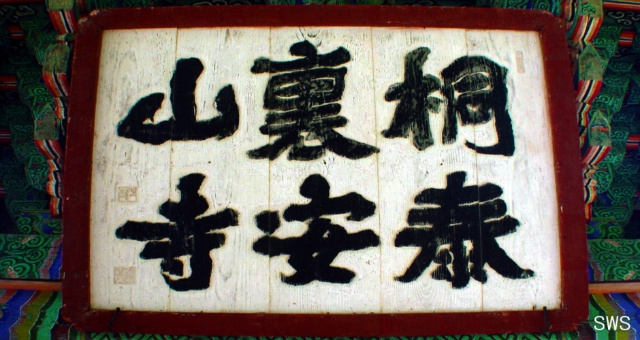 桐裏山
泰安寺
SWS